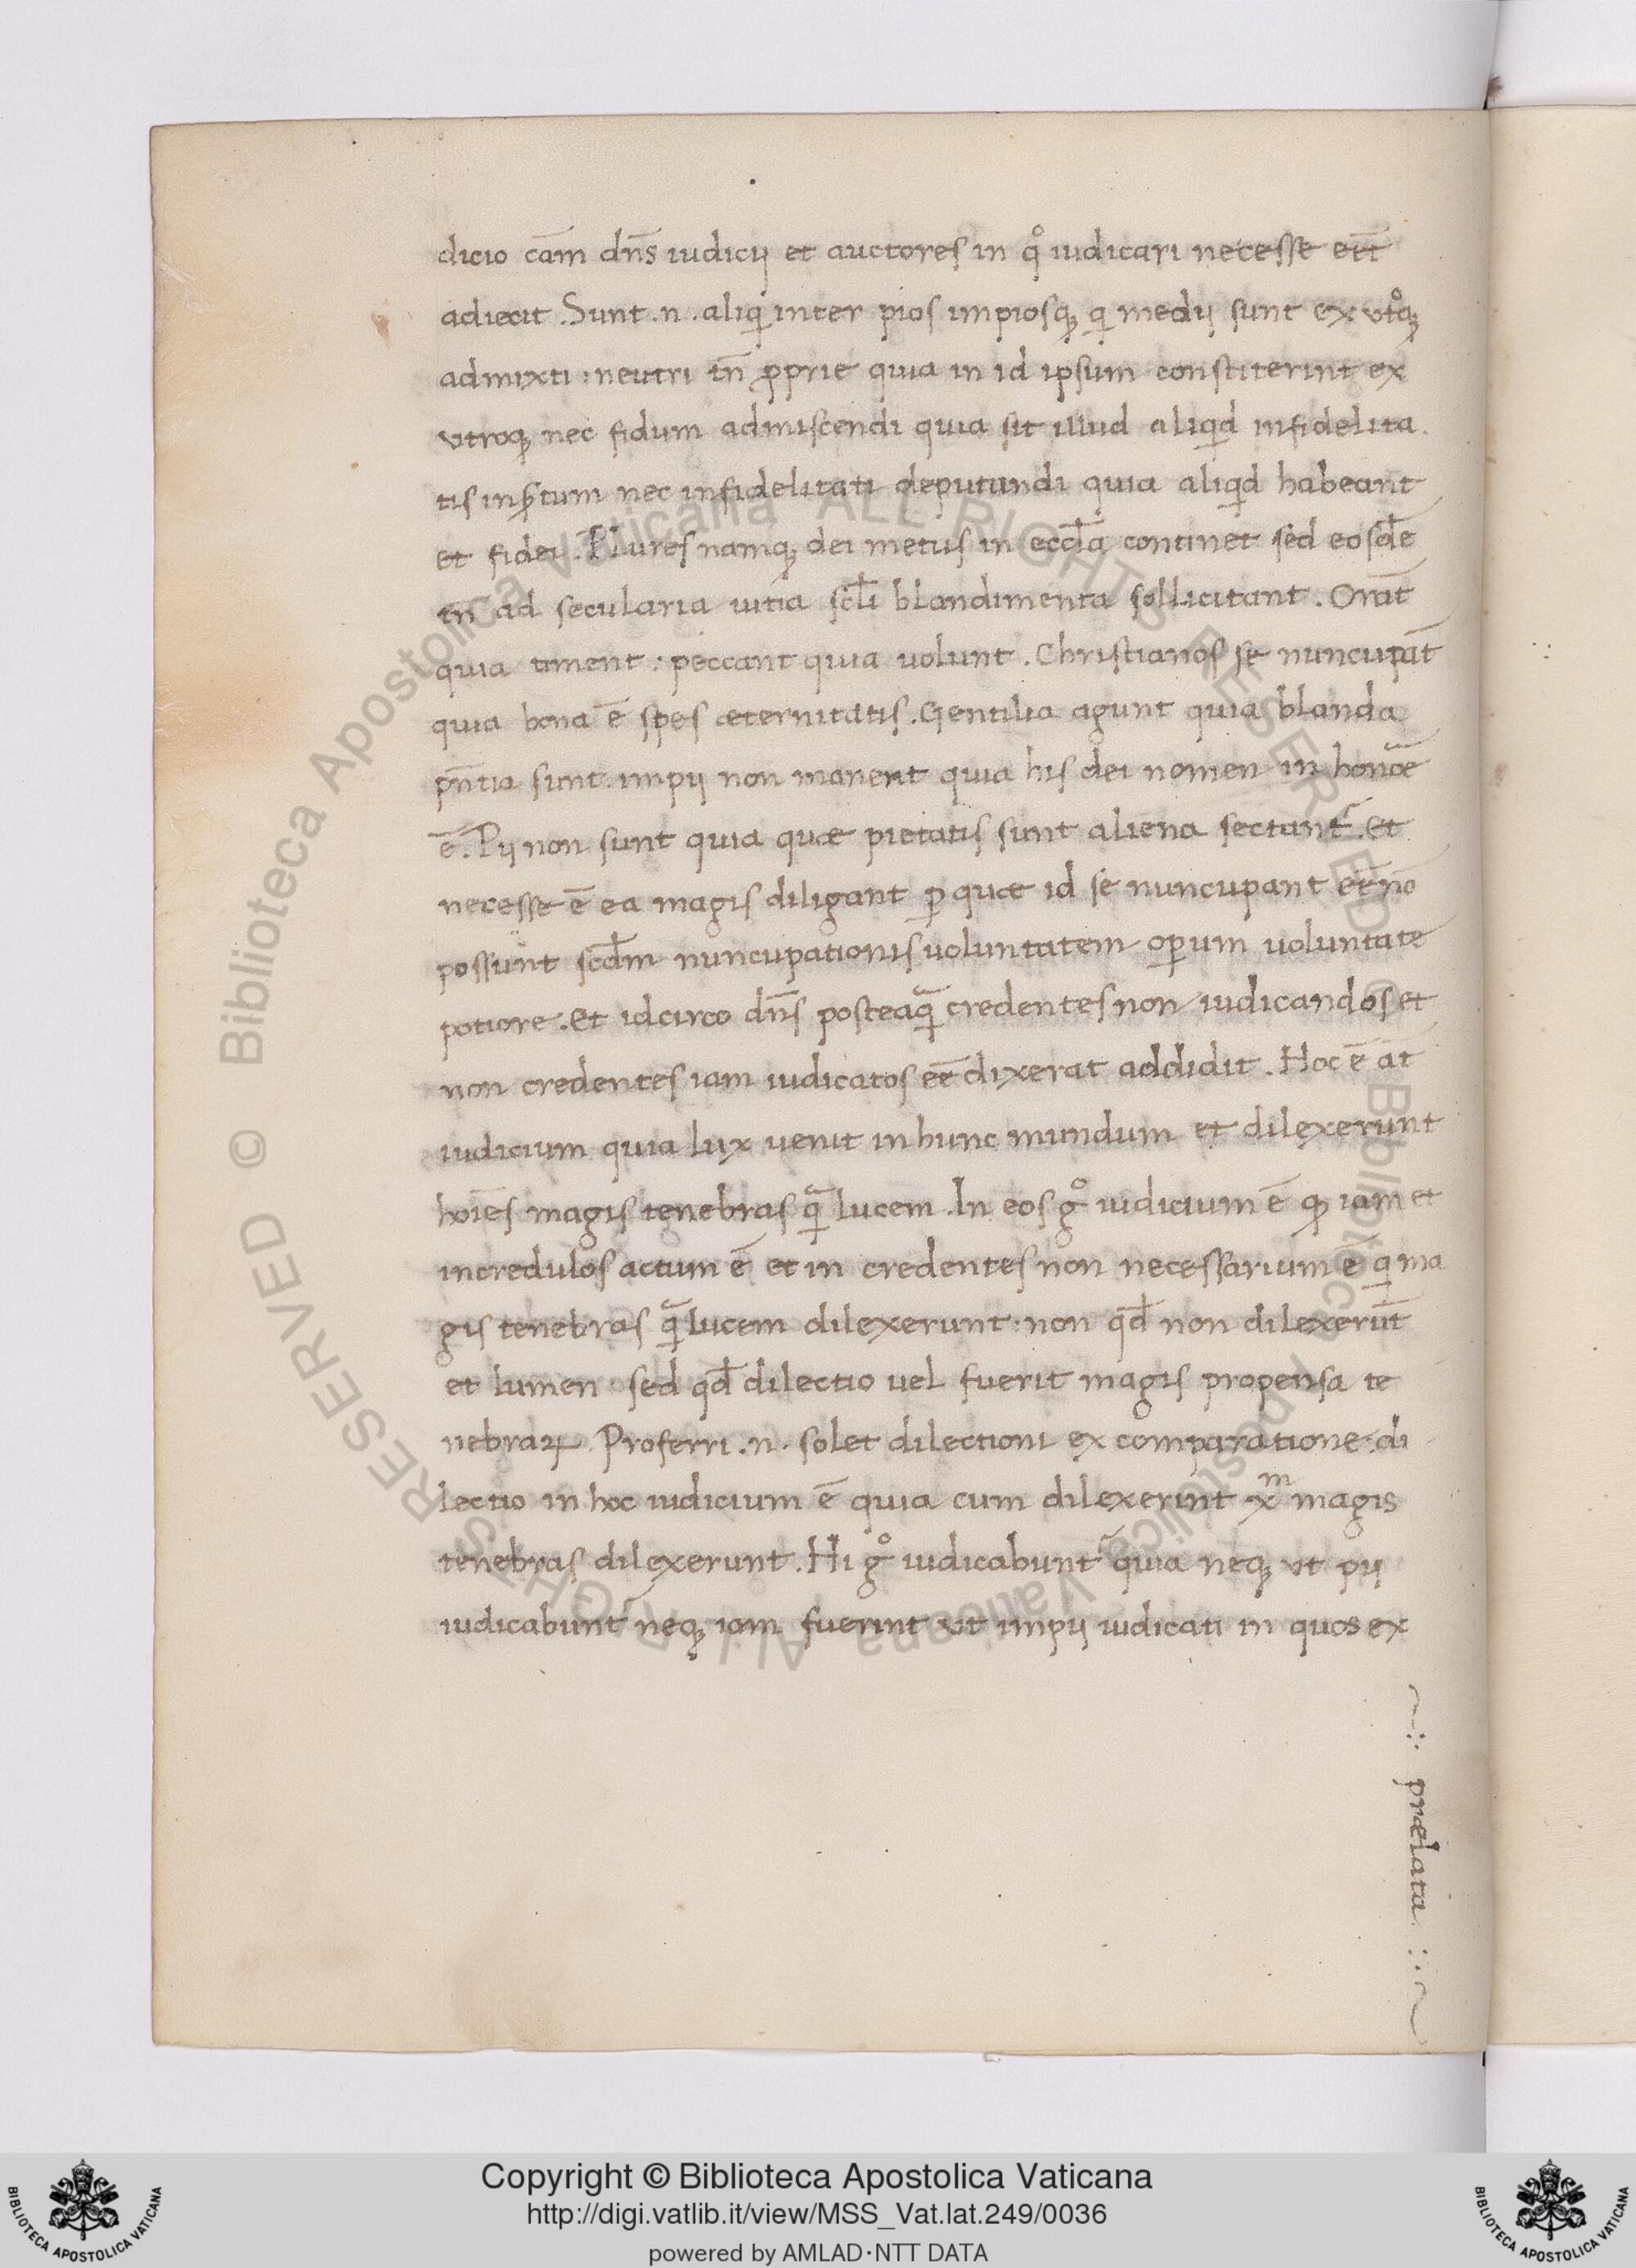 dicio cām dn̄s iudicij et auctores in qͦ iudicari necesse eēt
adiecit. Sunt .n. aliqi inter pios impiosq; qi medij sunt ex vtͦq;
admixti: neutri in̄ ꝓprie quia in id ipsum constiterint ex
vtroq; nec fidum admiscendi quia sit illud aliqid infidelita
tis insꝑtum nec infidelitati deputandi quia aliqid habeant
et fidei. Plures namq; dei metus in eccl̄a continet sed eosdē
tn̄ ad secularia uitia scl̄i blandimenta sollicitant. Orāt
quia timent: peccant quia uolunt. Christianos se nuncupāt
quia bona ē spes æternitatis. Gentilia agunt quia blanda
pn̄tia sunt. impij non manent quia his dei nomen in honoē
ē. Pij non sunt quia quæ pietatis sunt aliena sectant᷑. et
necesse ē ea magis diligant ꝑ quæ id se nuncupant et nō
possunt scd̄m nuncupationis uoluntatem oꝑum uoluntate
potiore. Et idcirco dn̄s posteaqᷓ credentes non iudicandos et
non credentes iam iudicatos eē dixerat addidit. Hoc ē at̄
iudicium quia lux uenit in hunc mundum et dilexerunt
hoīes magis tenebras qᷓ lucem. In eos gͦ iudicium ē q; iam et
incredulos actum ē et in credentes non necessarium ē qi ma
gis tenebras qᷓ lucem dilexerunt: non qd̄ non dilexerūt
et lumen: sed qd̄ dilectio uel fuerit magis propensa te
nebraꝝ. Proferri .n. solet dilectioni ex comparatione di
lectio in hoc iudicium ē quia cum dilexerint xᵐ magis
tenebras dilexerunt. Hi gͦ iudicabunt᷑ quia neq; vt pij
iudicabunt᷑ neq; iam fuerint vt impij iudicati in quos ex
prælata
Copyright © Biblioteca Apostolica Vaticana
http://digi.vatlib.it/view/MSS_Vat.lat.249/0036
powered by AMLAD·NTT DATA
BIBLIOTECA APOSTOLICA VATICANA
BIBLIOTECA APOSTOLICA VATICANA
Biblioteca Apostolica Vaticana ALL RIGHTS RESERVED © Biblioteca Apostolica Vaticana ALL RIGHTS RESERVED ©